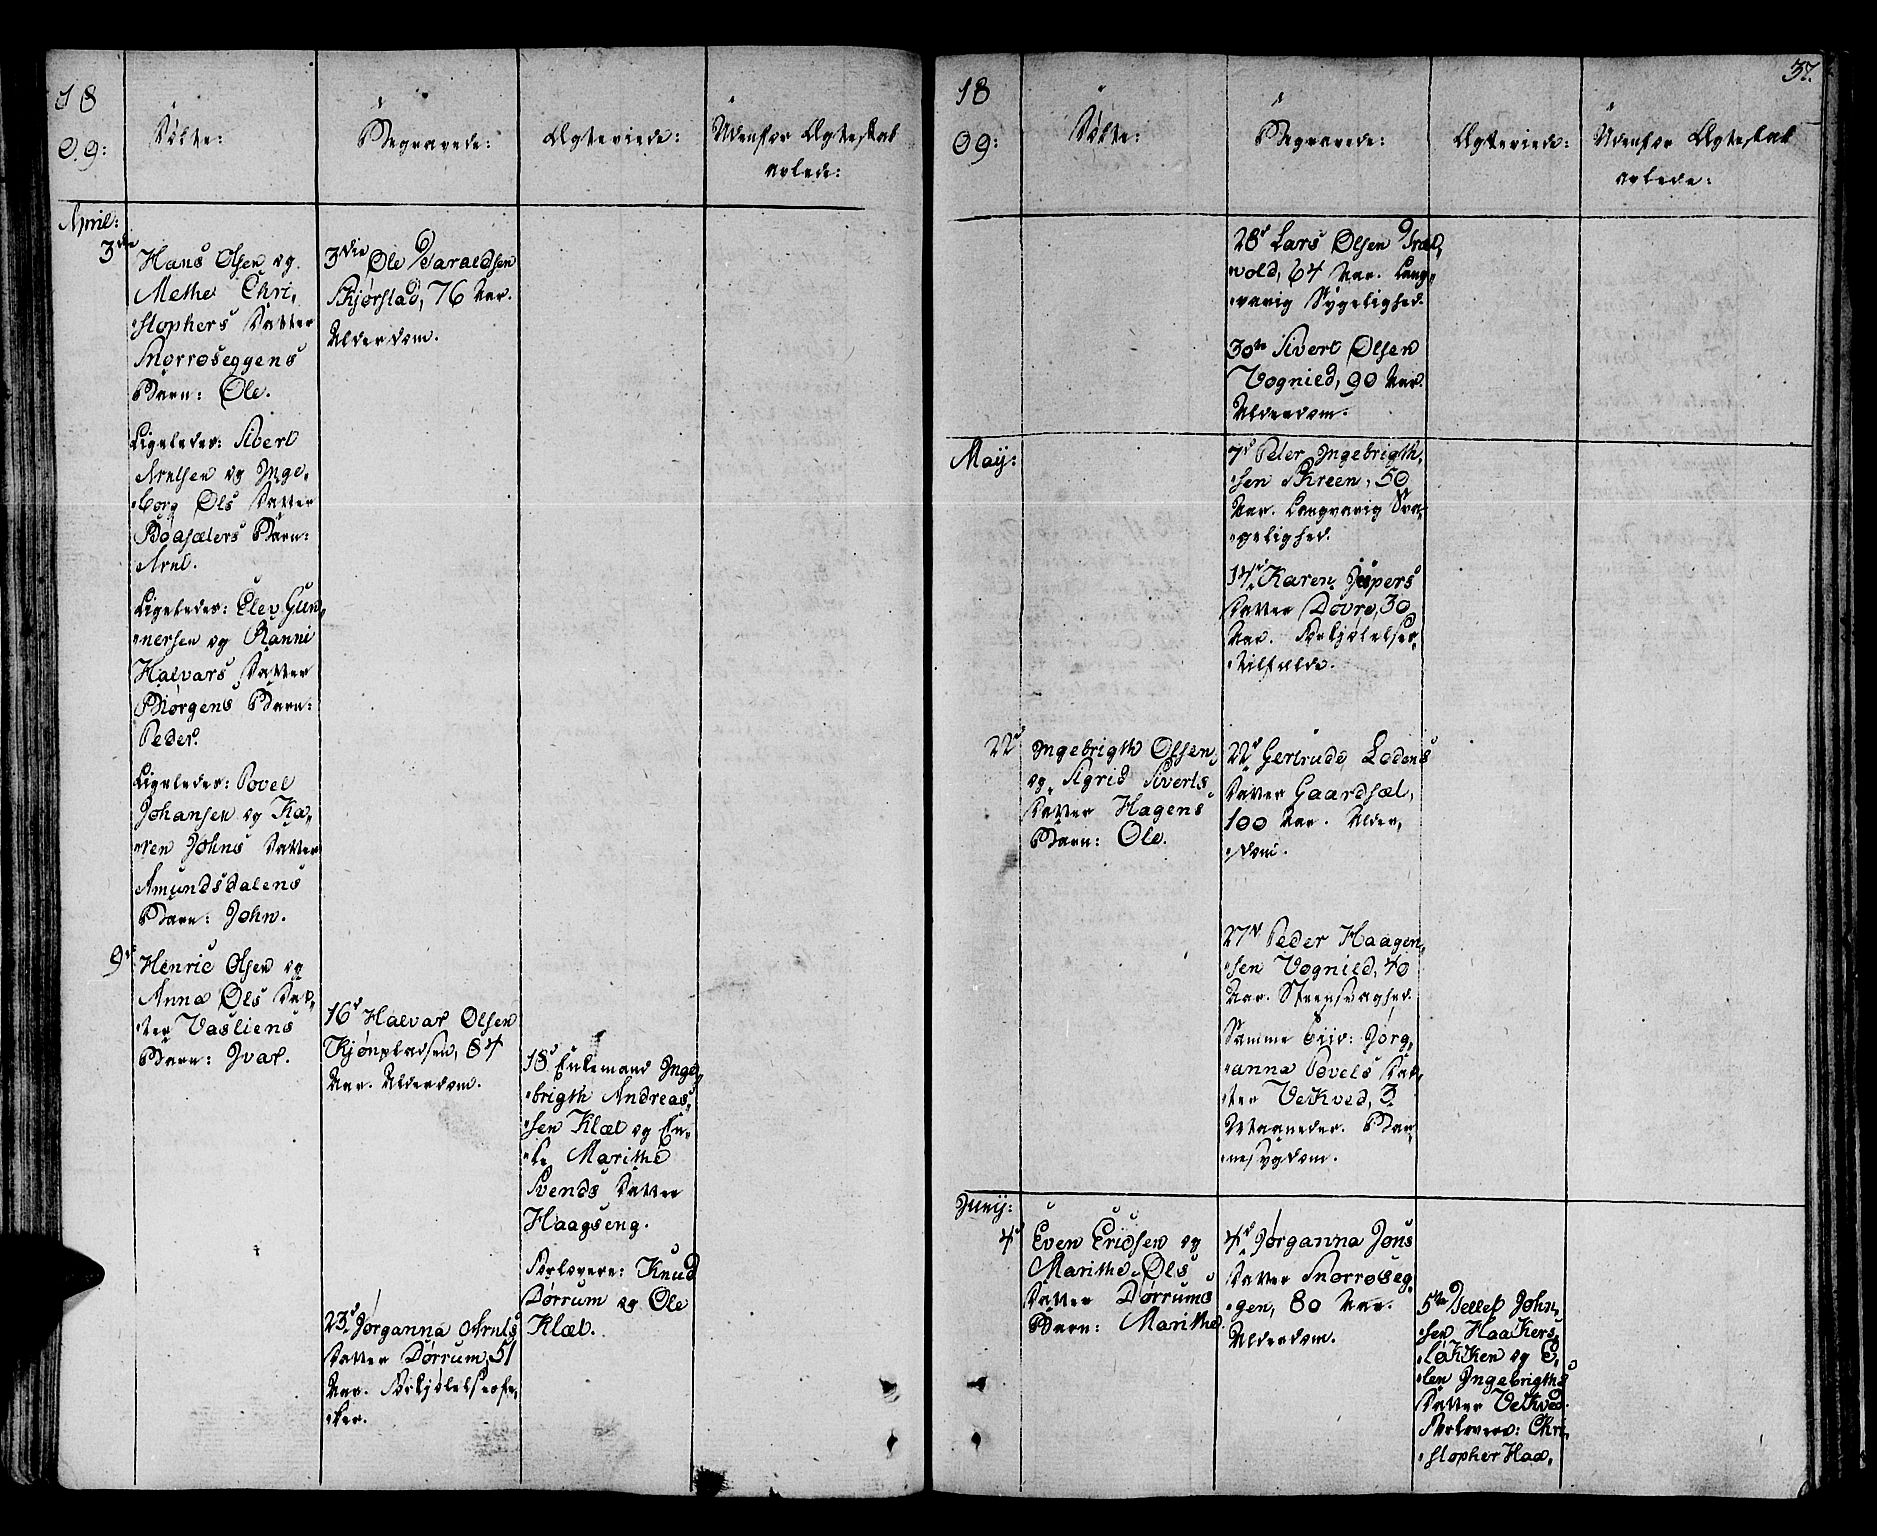 18
09:
Døbte:
Begravede:
Ægteviede:
Udenfor Ægteskab
avlede:
April:
3die
Hans Olsen og
Methe Chri-
stophers Datter
Snorroseggens
Barn: Ole.
Ligeledes: Sivert
Arntsen og Inge-
borg Ols Datter
Boasæters Barn:
Arnt.
Ligeledes: Elev Gun-
nersen og Ranni
Halvars Datter
Biørgens Barn:
Peder.
Ligeledes: Povel
Johansen og Ka-
ren Johns Datter
Amundsdalens
Barn: John.
9de
Henric Olsen og
Anna Ols Dat-
ter Vasliens
Barn: Ivar.
3die Ole Haraldsen
Skjørstad, 76 Aar.
Alderdom.
16d Halvar Olsen
Kjønpladsen, 84
Aar. Alderdom.
23d Jørganna Arnts
Datter Dørrum, 51
Aar. Forkjølelsesfe-
ber.
18d Enkemand Inge-
brigth Andreas-
sen Klæt og En-
ke Marithe
Svends Datter
Haagseng.
Forlovere: Knud
Dørrum og Ole
Klæt.
37.
18
09:
Døbte:
Begravede:
Ægteviede:
Udenfor Ægteskab
avlede:
28d Lars Olsen
vold, 64 Aar. Lang-
varig Sygelighed.
30te Sivert Olsen
Vognild, 90 Aar.
Alderdom.
Maij:
7d Peter Ingebrigth-
sen Skreen, 50
Aar. Langvarig Sva-
gelighed.
14d Karen Jespers
Datter Dovre, 30
Aar. Forkjølelses-
tilfælde.
22d
Ingebrigth Olsen
og Sigrid Siverts
Datter Hagens
Barn: Ole.
22d Gertrude Lodens
Datter Gaardsæt,
100 Aar. Alder-
dom.
27d Peder Haagen-
sen Vognild, 40
Aar. Steensvaghed.
Samme Tiid: Jørg-
anna Povels Dat-
ter Vetkved, 3
Maaneder. Bør-
nesygdom.
Junij:
4d
Even Ericsen og
Marithe Ols
Datter Dørrums
Barn: Marithe.
4d Jørganna Jons
Datter Snorroseg-
gen, 80 Aar.
Alderdom.
5te Dellef John-
sen Haakers-
løkken og E-
len Ingebrigths
Datter Vetkved.
Forlovere: Chri-
stopher Haa-